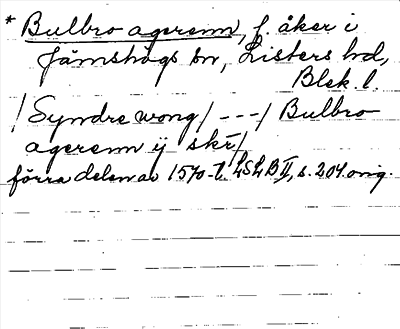 * Bulbro agerenn, f. åker i
Jämshögs sn, Listers hd,
Blek. l.
/ Syndre wong / - - - / Bulbro
agerenn ij skr /
förra delen av 1570-t. LSLB II, s. 204 orig.